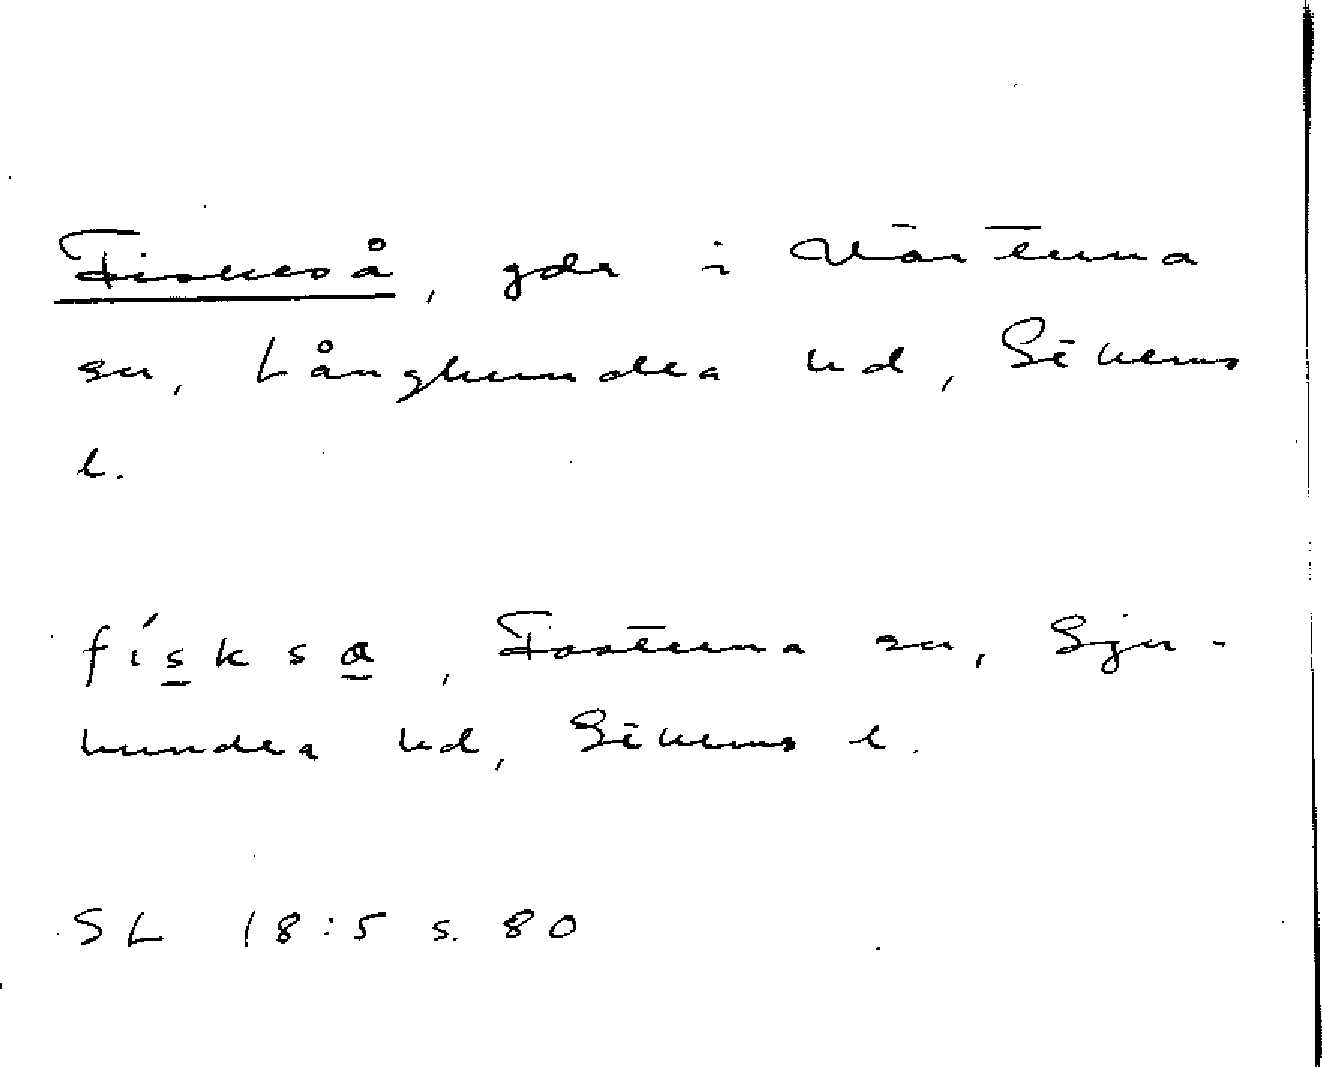 Fiskeså, gdr i Närtuna
sn, Långhundra hd, Sthlms
l.
físksa, Fasterna sn, Sju-
hundra hd, Sthlms l.
SL 18:5 s. 80